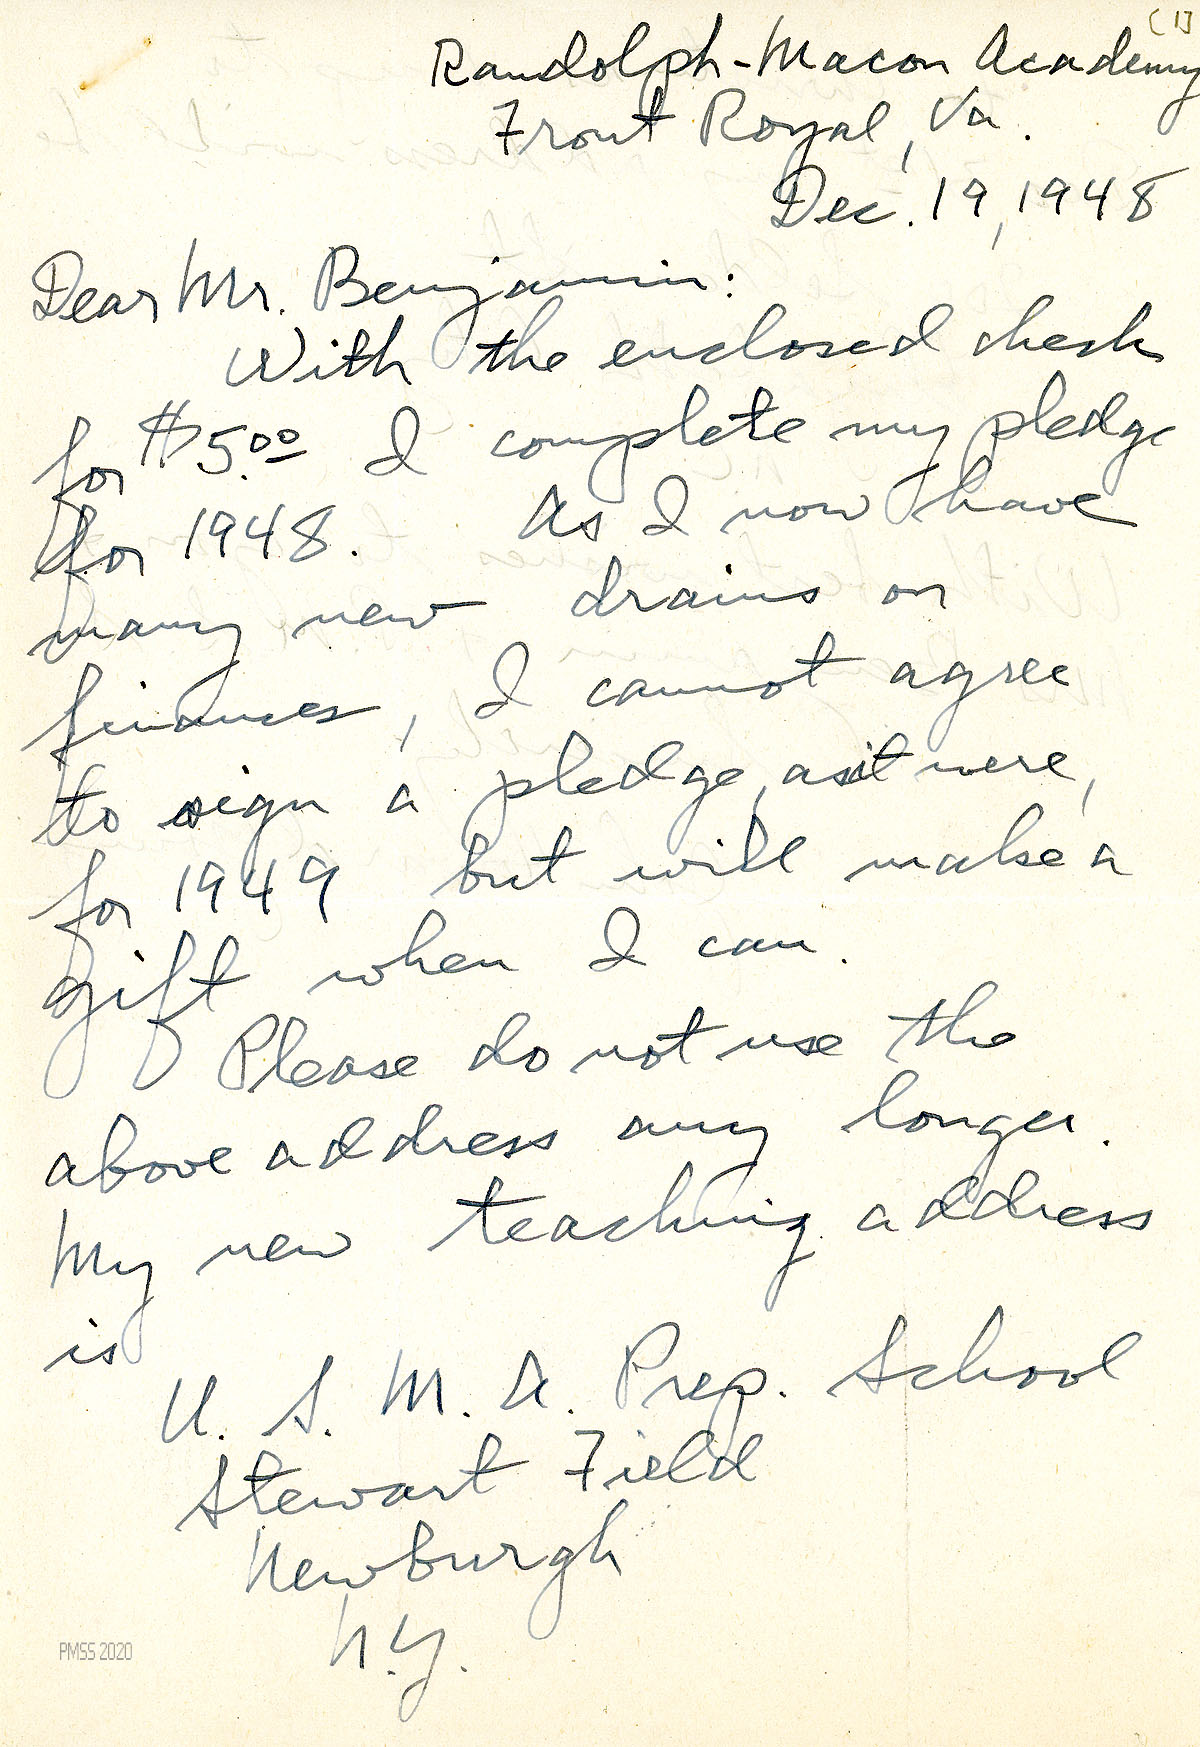 (1)
Randolph-Macon Academy
Front Royal, Va.
Dec. 19, 1948
Dear Mr. Benjamin:
With the enclosed check
for $5.00 I complete my pledge
for 1948. As I now have
many new drains on
finances, I cannot agree
to sign a pledge, as it were,
for 1949 but will make a
gift when I can.
Please do not use the
above address any longer.
My new teaching address
is
U. S. M. A. Prep. School
Stewart Field
Newburgh
N.Y.
PMSS 2020